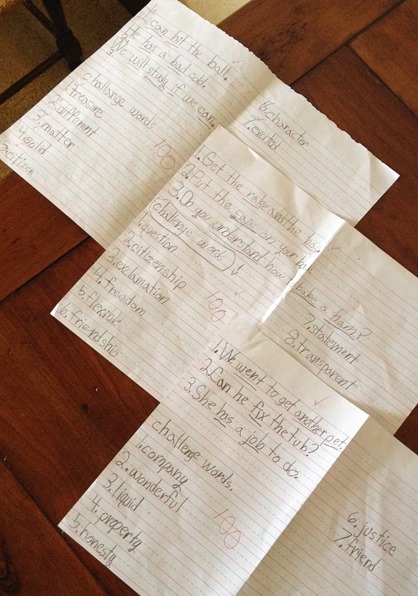 1. I can hit the ball.
2. He has a bad cold.
3. We will study if we can.
challange words
1. treasure
2. different
3. matter
4. solid
5. citizen
6. character
7. excited
100
1. Get the rake and the
2. Put the on your
3. Do you understand how bake a ham?
Challenge words
1. question
2. citizenship
3. exclamation
4. freedom
5. flexible
6. friendship
7. statement
8. transparent
100
1. We went to get another pet.
2. Can he fix the tub?
3. She has a job to do.
challenge words.
1. company
2. wonderful
3. liquid
4. property
5. honesty
6. justice
7. friend
100